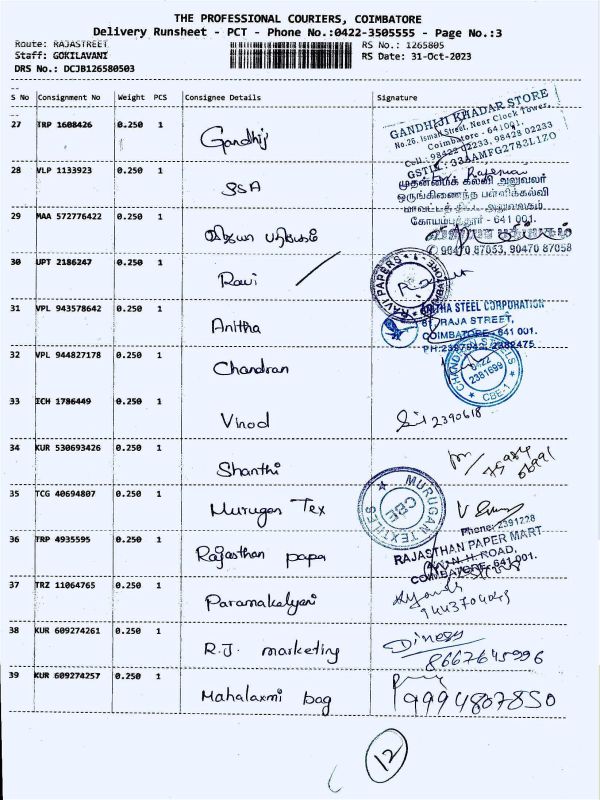 THE PROFESSIONAL COURIERS, COIMBATORE
Delivery Runsheet - PCT - Phone No.:0422-3505555 - Page No.:3
Route: RAJASTREET
RS No.: 1265805
Staff: GOKILAVANI
RS Date: 31-Oct-2023
DRS No.: DCJB126580503
S No Consignment No Weight PCS Consignee Details Signature
27 TRP 1608426 0.250 1 Gandhiji
GANDHIJI KHADAR STORE
No.26, Ismail Street, Near Clock Tower,
Coimbatore - 641001.
Cell : 98422 02233, 98428 02233
GSTIN: 33AAMFG2783L1ZO
28 VLP 1133923 0.250 1 SSA
முதன்மைக் கல்வி அலுவலர்
ஒருங்கிணைந்த பள்ளிக்கல்வி
மாவட்டத் திட்ட அலுவலகம்
கோயம்புத்தூர் - 641 001.
29 MAA 572776422 0.250 1 விஜயா பதிப்பகம்
90470 87053, 90470 87058
30 UPT 2186247 0.250 1 Ravi
RAVI PAPERS
COIMBATORE
31 VPL 943578642 0.250 1 Anitha
ANITHA STEEL CORPORATION
RAJA STREET,
COIMBATORE - 641 001.
32 VPL 944827178 0.250 1 Chandran
CHANDRAN STEELS
0422
2381699
CBE-1
33 ICH 1786449 0.250 1 Vinod
2390618
34 KUR 530693426 0.250 1 Shanthi
35 TCG 40694807 0.250 1 Murugan Tex
MURUGAN TEXTILES
CBE
36 TRP 4935595 0.250 1 Rajasthan papa
Phone: 2391228
RAJASTHAN PAPER MART
H. ROAD,
COIMBATORE - 641 001.
37 TRZ 11064765 0.250 1 Paramakalyani
38 KUR 609274261 0.250 1 R.J. marketing
Dinesh
8667645996
39 KUR 609274257 0.250 1 Mahalaxmi bag
9994807850
12